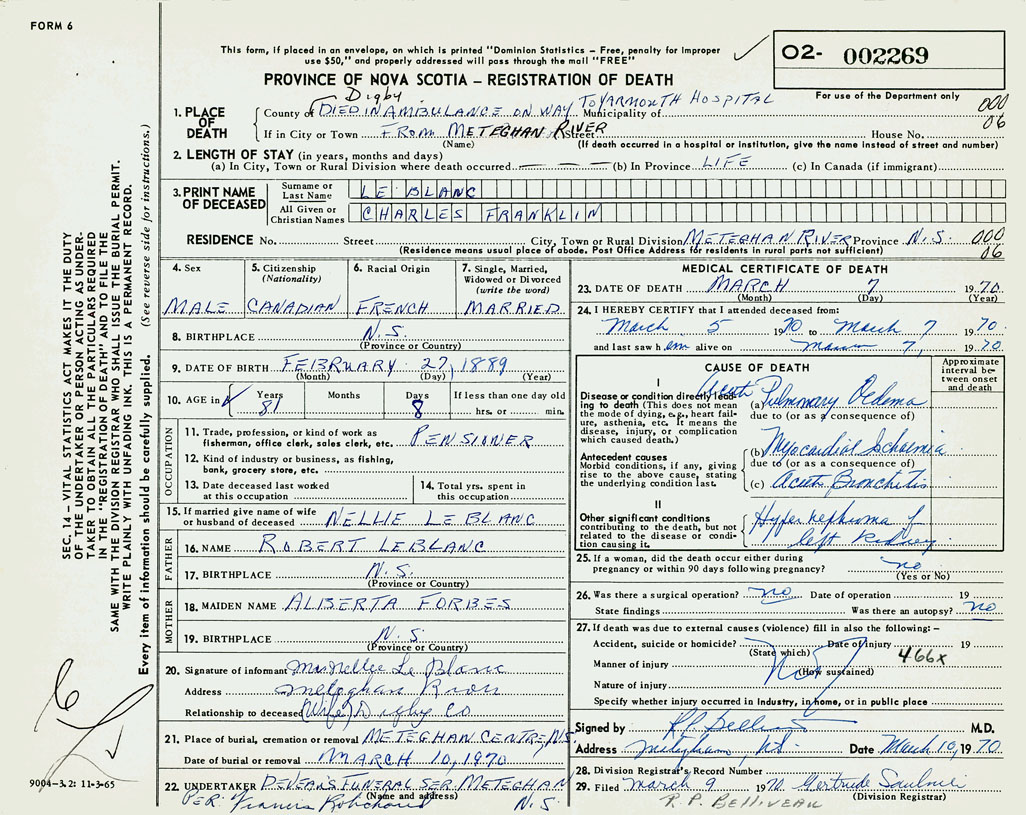 FORM 6
This form, if placed in an envelope, on which is printed "Dominion Statistics – Free, penalty for improper
use $50," and properly addressed will pass through the mail "FREE"
O2- 002269
PROVINCE OF NOVA SCOTIA – REGISTRATION OF DEATH
For use of the Department only
000
06
1. PLACE OF DEATH
Digby
County of DIED IN AMBULANCE ON WAY TO YARMOUTH HOSPITAL Municipality of
If in City or Town FROM METEGHAN RIVER Street House No.
(Name) (If death occurred in a hospital or institution, give the name instead of street and number)
2. LENGTH OF STAY (in years, months and days)
(a) In City, Town or Rural Division where death occurred (b) In Province LIFE (c) In Canada (if immigrant)
3. PRINT NAME OF DECEASED
Surname or Last Name LE BLANC
All Given or Christian Names CHARLES FRANKLIN
RESIDENCE No. Street City, Town or Rural Division METEGHAN RIVER Province N.S. 000
(Residence means usual place of abode. Post Office Address for residents in rural parts not sufficient) 06
4. Sex MALE
5. Citizenship (Nationality) CANADIAN
6. Racial Origin FRENCH
7. Single, Married, Widowed or Divorced (write the word) MARRIED
8. BIRTHPLACE N.S.
(Province or Country)
9. DATE OF BIRTH FEBRUARY 27, 1889
(Month) (Day) (Year)
10. AGE in Years 81 Months Days 8 If less than one day old hrs. or min.
OCCUPATION
11. Trade, profession, or kind of work as fisherman, office clerk, sales clerk, etc. PENSIONER
12. Kind of industry or business, as fishing, bank, grocery store, etc.
13. Date deceased last worked at this occupation
14. Total yrs. spent in this occupation
15. If married give name of wife or husband of deceased NELLIE LEBLANC
FATHER
16. NAME ROBERT LEBLANC
17. BIRTHPLACE N.S.
(Province or Country)
MOTHER
18. MAIDEN NAME ALBERTA FORBES
19. BIRTHPLACE N.S.
(Province or Country)
20. Signature of informant Mrs Nellie Le Blanc
Address Meteghan River
Relationship to deceased (Wife) Digby Co
21. Place of burial, cremation or removal METEGHAN CENTRE, N.S.
Date of burial or removal MARCH 10, 1970
22. UNDERTAKER DEVEAU'S FUNERAL SER. METEGHAN
(Name and address)
PER: Francis Robichaud N.S.
MEDICAL CERTIFICATE OF DEATH
23. DATE OF DEATH MARCH 7 1970
(Month) (Day) (Year)
24. I HEREBY CERTIFY that I attended deceased from:
March 5 1970 to March 7 1970
and last saw him alive on March 7, 1970
CAUSE OF DEATH
Approximate interval between onset and death
I
Disease or condition directly leading to death (This does not mean the mode of dying, e.g., heart failure, asthenia, etc. It means the disease, injury, or complication which caused death.)
(a) Acute Pulmonary Oedema
due to (or as a consequence of)
Antecedent causes
Morbid conditions, if any, giving rise to the above cause, stating the underlying condition last.
(b) Myocardial Ischaemia
due to (or as a consequence of)
(c) Acute Bronchitis
II
Other significant conditions contributing to the death, but not related to the disease or condition causing it.
Hypernephroma of
left kidney
25. If a woman, did the death occur either during pregnancy or within 90 days following pregnancy? no
(Yes or No)
26. Was there a surgical operation? no Date of operation 19
State findings Was there an autopsy? no
27. If death was due to external causes (violence) fill in also the following: –
Accident, suicide or homicide? Date of injury 19
(State which) 466x
Manner of injury
(How sustained)
Nature of injury
Specify whether injury occurred in Industry, in home, or in public place
Signed by M.D.
Address Meteghan, N.S. Date March 10, 1970
28. Division Registrar's Record Number
29. Filed March 9 1970 Gertrude Saulnier
(Division Registrar)
R. P. BELLIVEAU
SEC. 14 – VITAL STATISTICS ACT MAKES IT THE DUTY
OF THE UNDERTAKER OR PERSON ACTING AS UNDER-
TAKER TO OBTAIN ALL THE PARTICULARS REQUIRED
IN THE "REGISTRATION OF DEATH" AND TO FILE THE
SAME WITH THE DIVISION REGISTRAR WHO SHALL ISSUE THE BURIAL PERMIT.
WRITE PLAINLY WITH UNFADING INK. THIS IS A PERMANENT RECORD.
Every item of information should be carefully supplied. (See reverse side for instructions.)
9004-3.2: 11-3-65